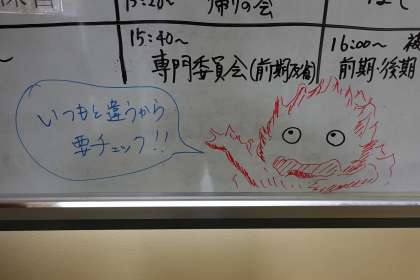 15:20～
帰りの会
15:40～
専門委員会(前期反省)
16:00～
前期・後期
いつもと違うから
要チェック!!